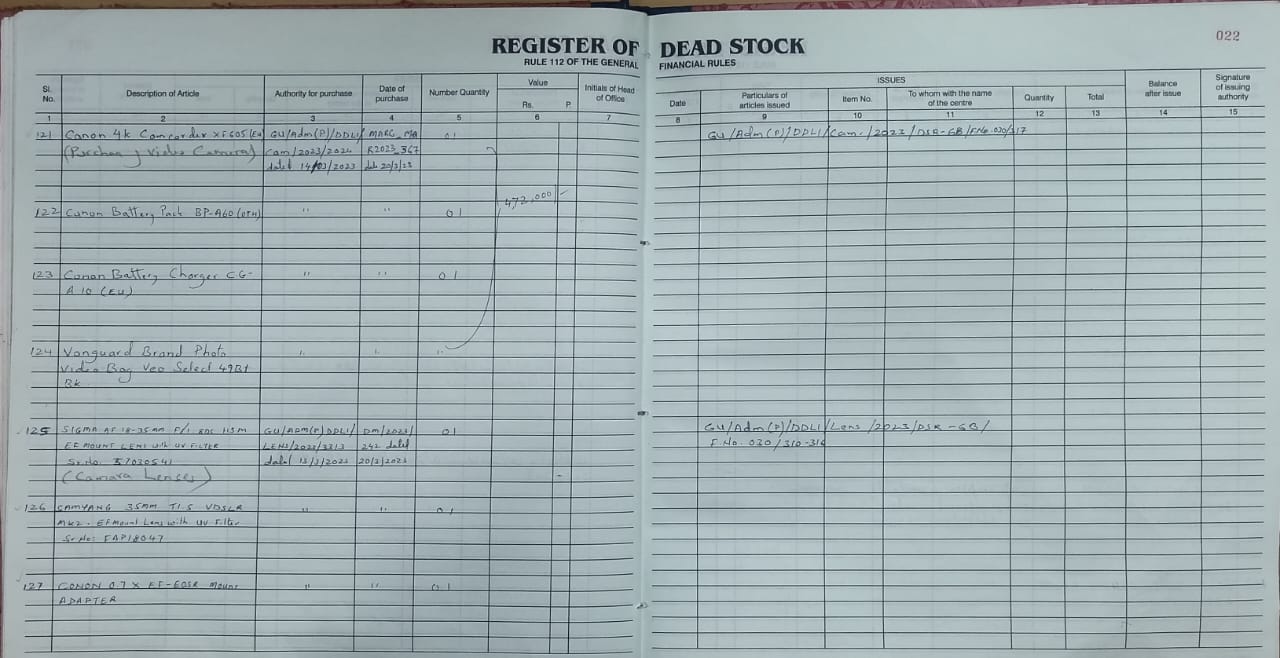 022
REGISTER OF DEAD STOCK
RULE 112 OF THE GENERAL FINANCIAL RULES
Sl. No. Description of Article Authority for purchase Date of purchase Number Quantity Value Rs. P. Initials of Head of Office
1 2 3 4 5 6 7
121 Canon 4k Camcorder XF605 (EU) GU/Adm(P)/DDLI/ MARG_MA 01
(Purchase of Video Camera) Cam/2023/2024 R2023_367
dated 14/03/2023 dt 20/3/23
472,000/-
122 Canon Battery Pack BP-A60 (OTH) " " 01
123 Canon Battery Charger CG- " " 01
A10 (EU)
124 Vanguard Brand Photo " " "
Video Bag Veo Select 49BT
BK
125 SIGMA AF 18-35mm F/1.8DC HSM GU/Adm(P)/DDLI/ DM/2023/ 01
EF MOUNT LENS with UV FILTER LENS/2023/3313 242 dated
Sr.No. 57030541 dated 13/3/2023 20/3/2023
(Camara Lenses) -
126 SAMYANG 35mm T1.5 VDSLR " " 01
MK2 - EF Mount Lens with UV Filter
Sr No: FAP18047
127 CONON 0.7 X EF-EOSR Mount " " 01
ADAPTER
ISSUES
Date Particulars of articles issued Item No. To whom with the name of the centre Quantity Total Balance after issue Signature of issuing authority
8 9 10 11 12 13 14 15
GU/Adm(P)/DDLI/Cam./2023/DSR-GB/F.No.030/317
GU/Adm(P)/DDLI/Lens/2023/DSR-GB/
F.No. 030/310-316